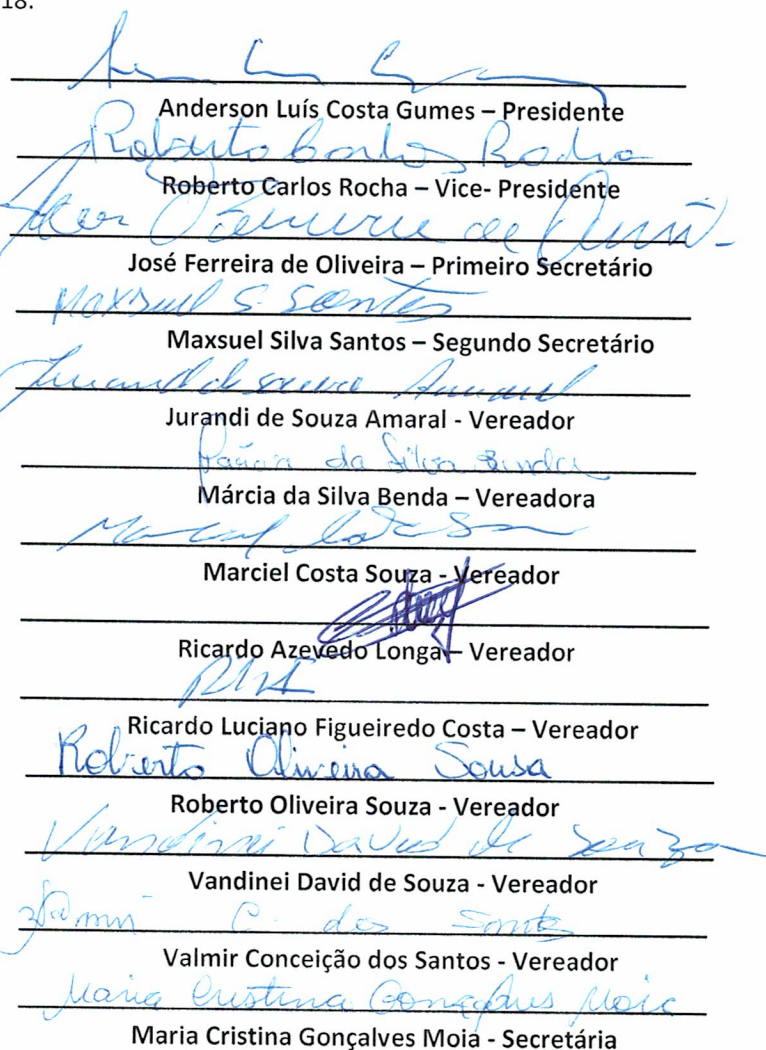 18.
Anderson Luís Costa Gumes – Presidente
Roberto Carlos Rocha
Roberto Carlos Rocha – Vice- Presidente
José Ferreira de Oliveira – Primeiro Secretário
Maxsuel S. Santos
Maxsuel Silva Santos – Segundo Secretário
Jurandi de Souza Amaral
Jurandi de Souza Amaral - Vereador
Márcia da Silva Benda
Márcia da Silva Benda – Vereadora
Marciel Costa Souza - Vereador
Ricardo Azevedo Longa – Vereador
Ricardo Luciano Figueiredo Costa – Vereador
Roberto Oliveira Sousa
Roberto Oliveira Souza - Vereador
Vandinei David de Souza
Vandinei David de Souza - Vereador
C. dos Santos
Valmir Conceição dos Santos - Vereador
Maria Cristina Gonçalves Moia
Maria Cristina Gonçalves Moia - Secretária